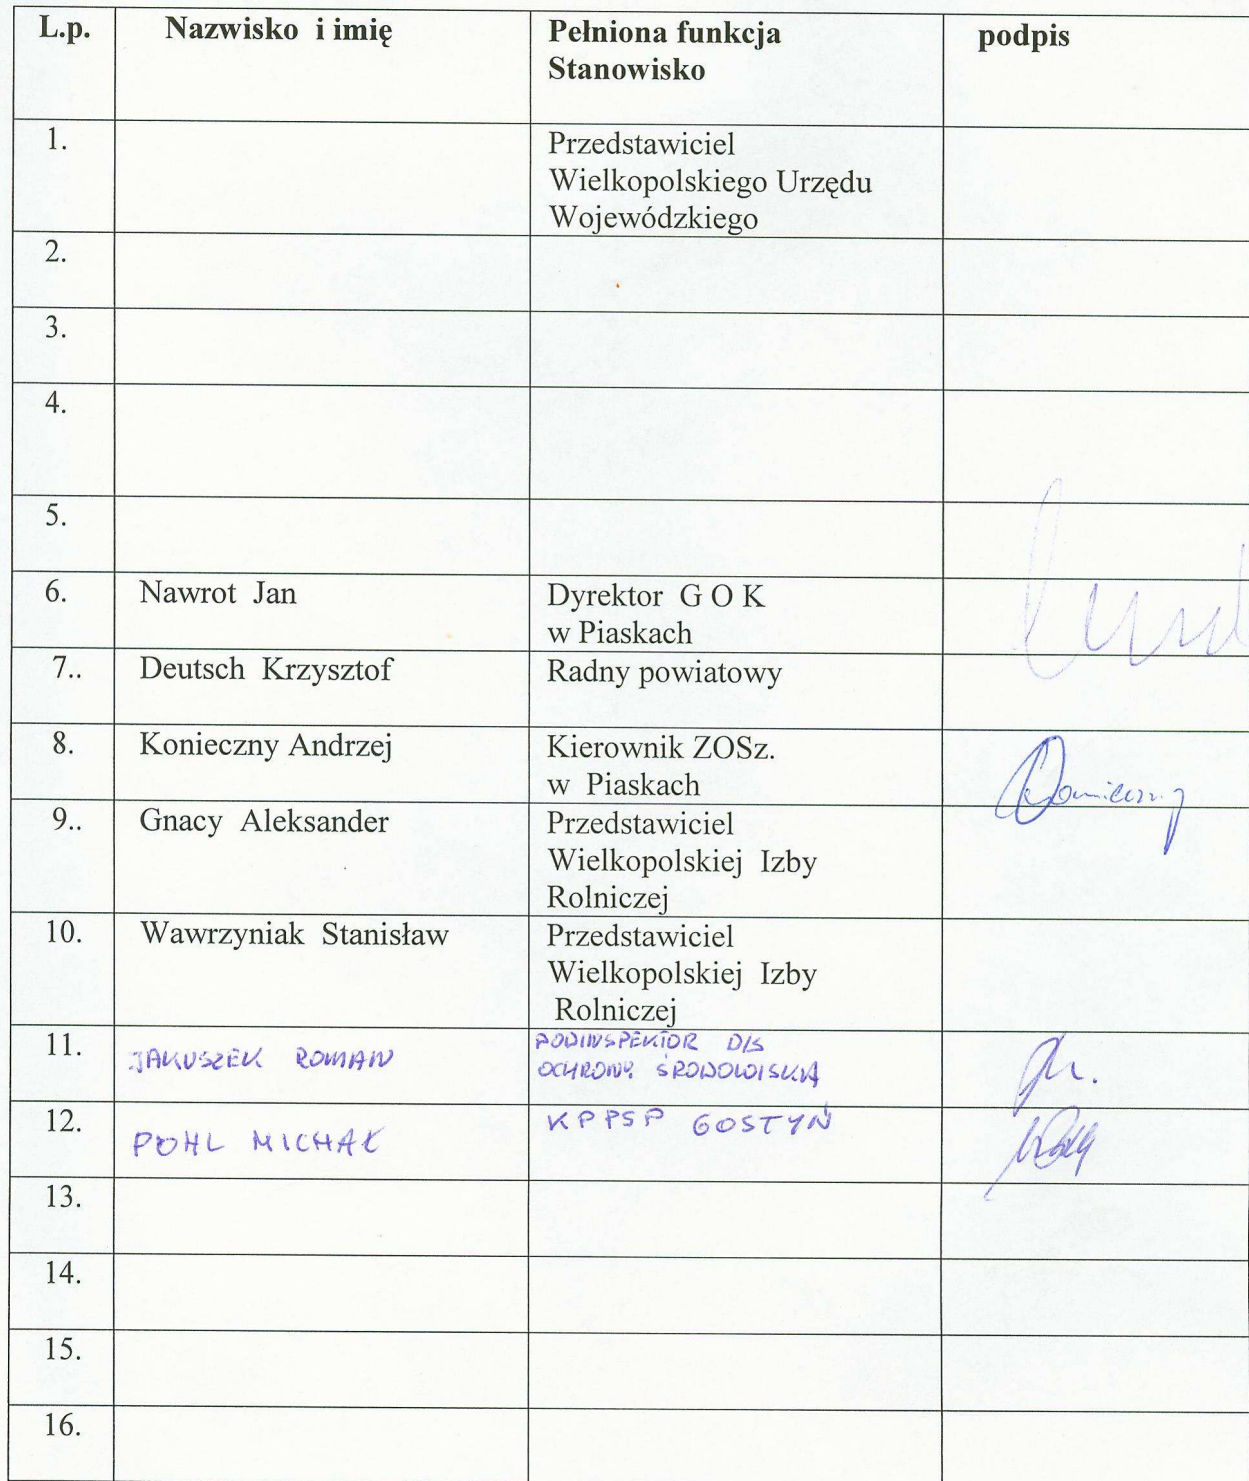 L.p. Nazwisko i imię Pełniona funkcja podpis
Stanowisko
1. Przedstawiciel
Wielkopolskiego Urzędu
Wojewódzkiego
2.
3.
4.
5.
6. Nawrot Jan Dyrektor G O K
w Piaskach
7.. Deutsch Krzysztof Radny powiatowy
8. Konieczny Andrzej Kierownik ZOSz.
w Piaskach
9.. Gnacy Aleksander Przedstawiciel
Wielkopolskiej Izby
Rolniczej
10. Wawrzyniak Stanisław Przedstawiciel
Wielkopolskiej Izby
Rolniczej
11. JAKUSZEK ROMAN PODINSPEKTOR D/S
OCHRONY ŚRODOWISKA
12. POHL MICHAŁ KPPSP GOSTYŃ
13.
14.
15.
16.